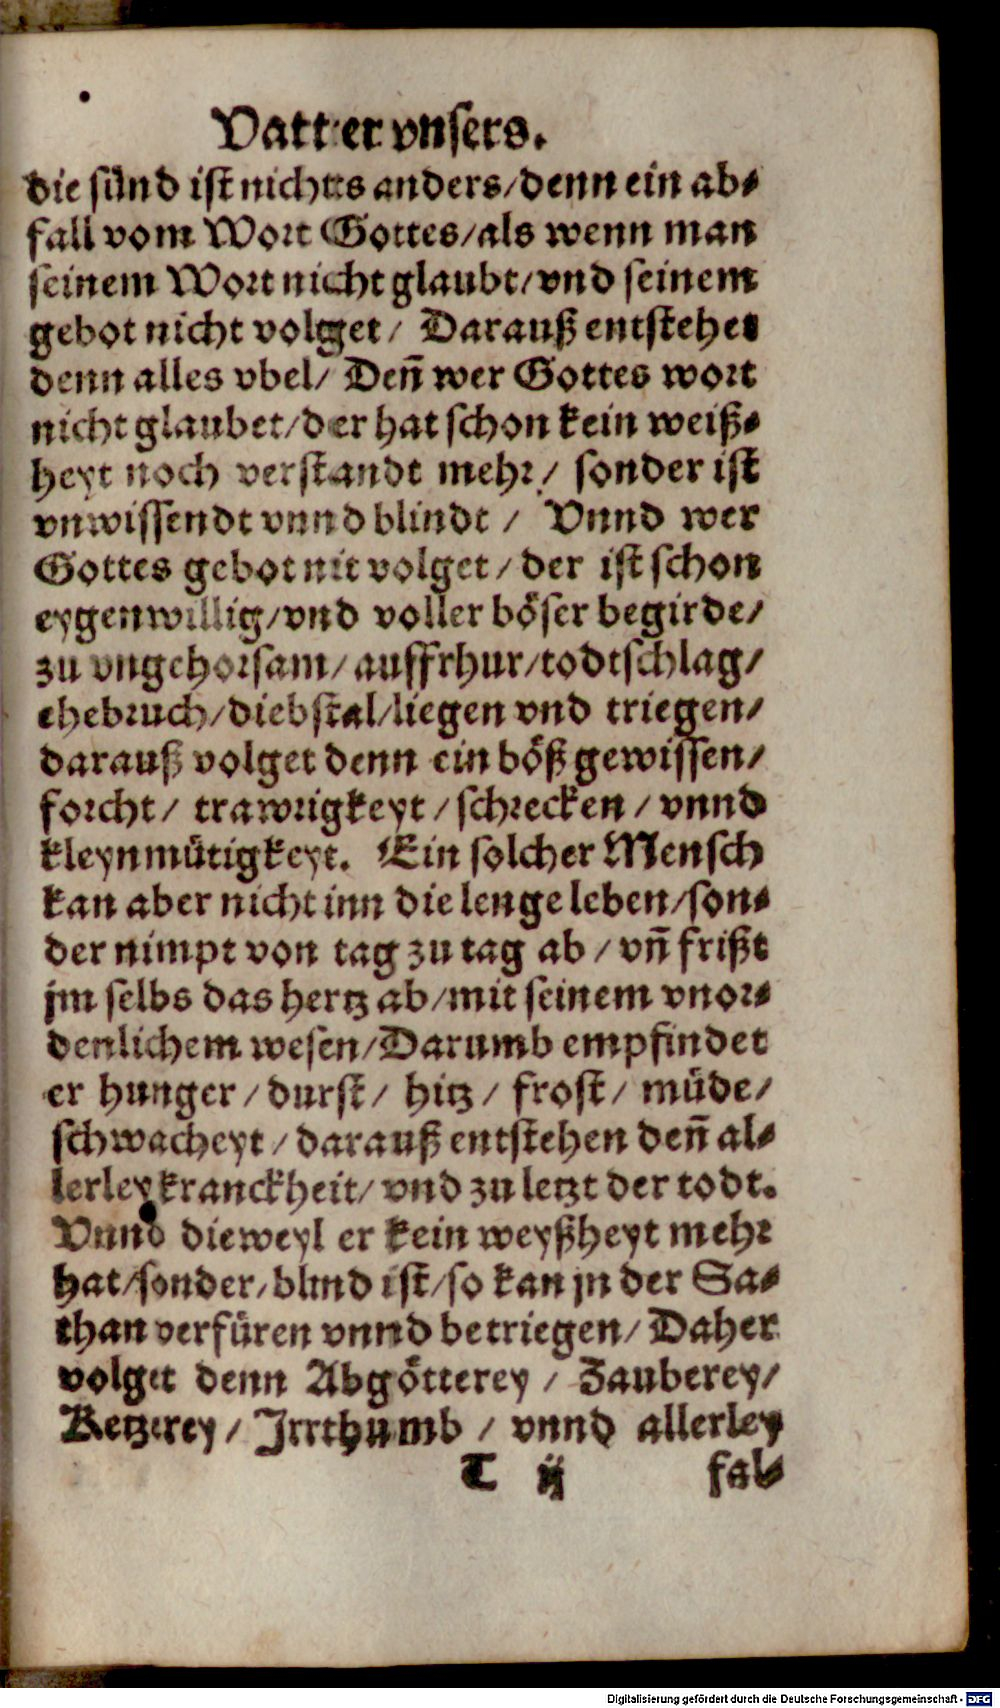 Vatter vnsers.
die sünd ist nichts anders/denn ein ab⸗
fall vom Wort Gottes/als wenn man
seinem Wort nicht glaubt/vnd seinem
gebot nicht volget/ Darauß entstehet
denn alles vbel/ Deñ wer Gottes wort
nicht glaubet/der hat schon kein weiß⸗
heyt noch verstandt mehr/ sonder ist
vnwissendt vnnd blindt / Vnnd wer
Gottes gebot nit volget/der ist schon
eygenwillig/vnd voller böser begirde/
zu vngehorsam/auffrhur/todtschlag/
ehebruch/diebstal/liegen vnd triegen/
darauß volget denn ein böß gewissen/
forcht/ trawrigkeyt/schrecken/vnnd
kleynmütigkeyt. Ein solcher Mensch
kan aber nicht inn die lenge leben/son⸗
der nimpt von tag zu tag ab/vñ frißt
jm selbs das hertz ab/mit seinem vnor⸗
denlichem wesen/Darumb empfindet
er hunger/durst/ hitz/ frost/ müde/
schwacheyt/darauß entstehen deñ al⸗
lerley kranckheit/vnd zu letzt der todt.
Vnnd dieweyl er kein weyßheyt mehr
hat/sonder/blind ist/so kan jn der Sa⸗
than verfüren vnnd betriegen/Daher
volget denn Abgötterey / Zauberey/
Ketzerey/ Jrrthumb / vnnd allerley
T ij fal⸗
Digitalisierung gefördert durch die Deutsche Forschungsgemeinschaft - DFG